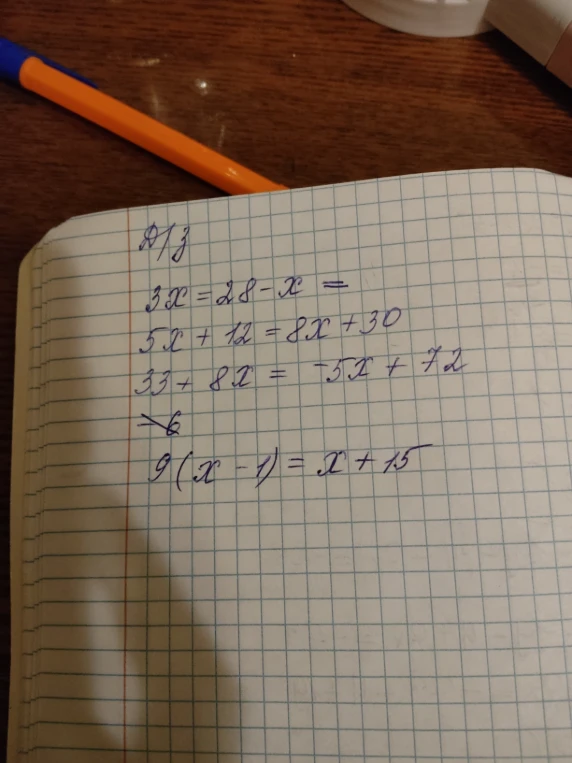 Д/з
3x = 28 - x =
5x + 12 = 8x + 30
33 + 8x = -5x + 72
-6
9(x - 1) = x + 15